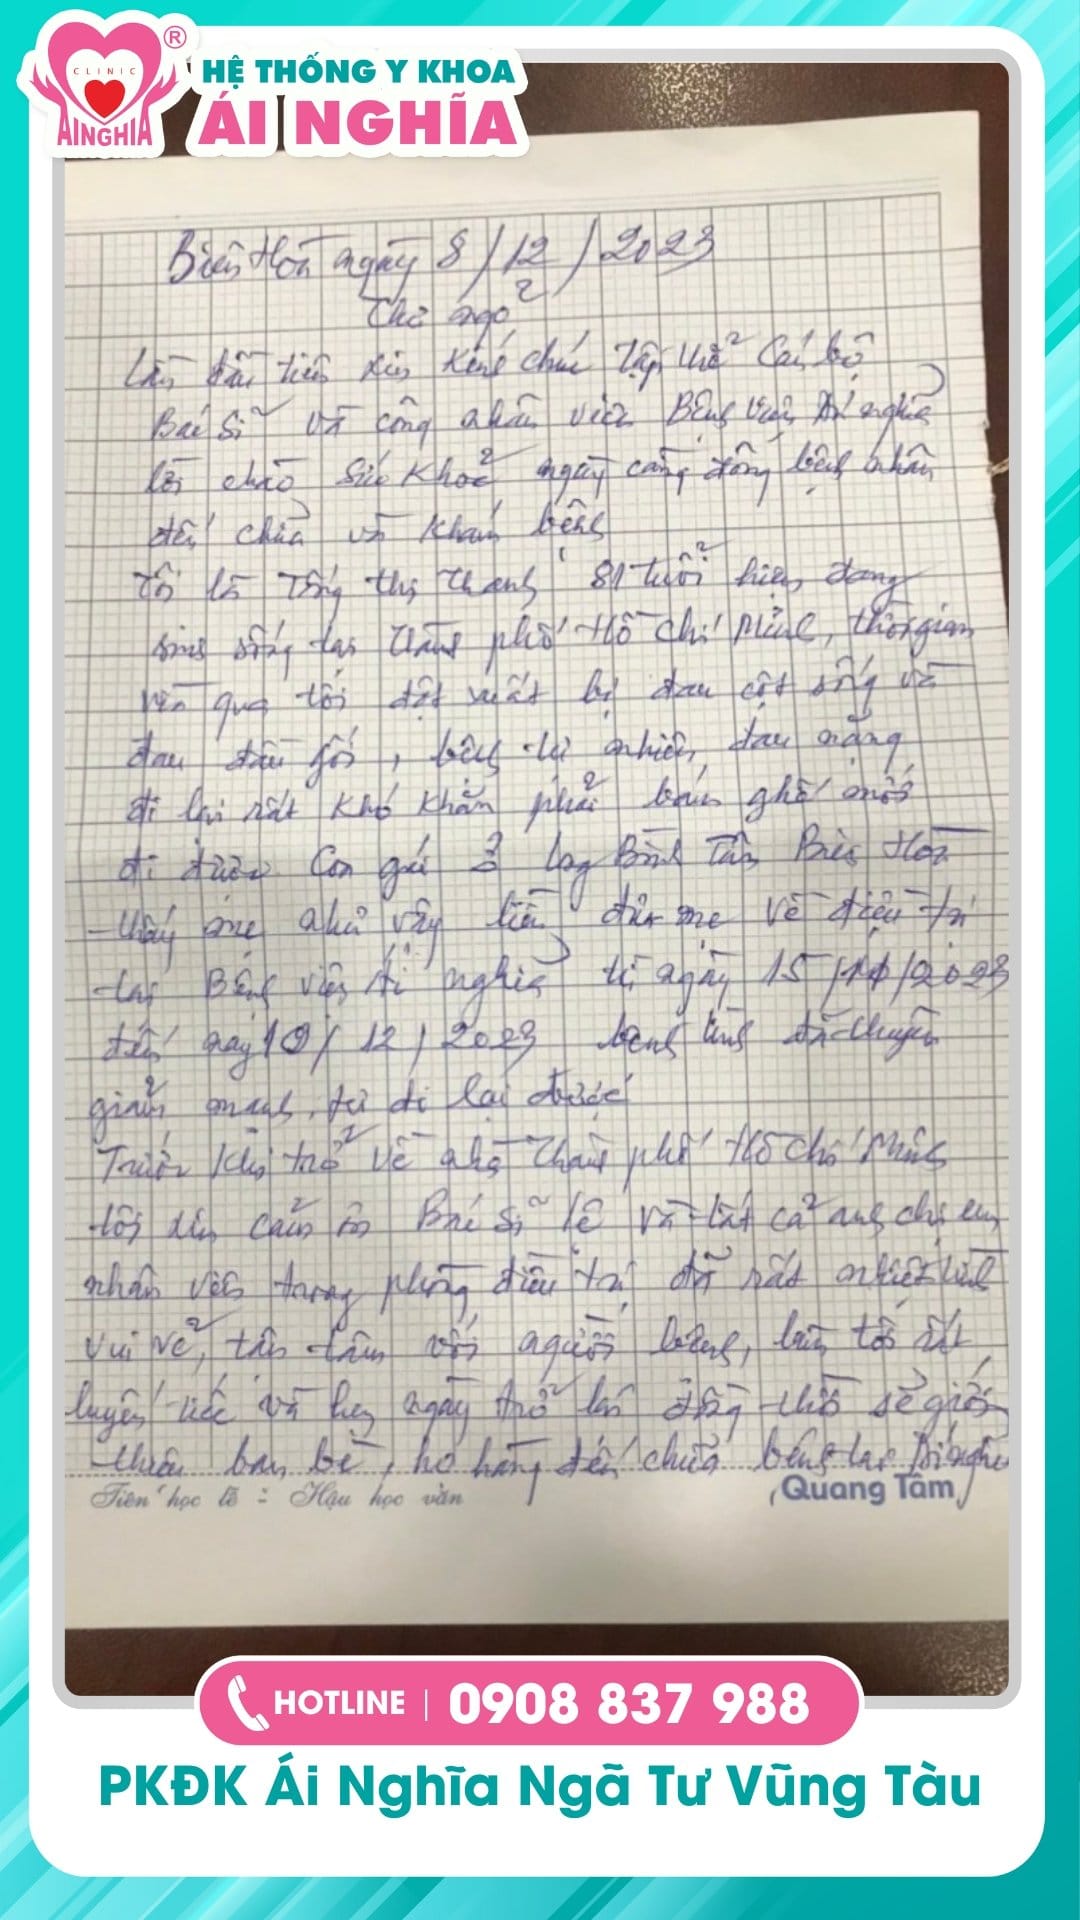 CLINIC
AINGHIA
®
HỆ THỐNG Y KHOA
ÁI NGHĨA
Biên Hòa ngày 8/12/2023
Thư ngỏ
Lần đầu tiên xin kính chúc tập thể cán bộ
Bác sĩ và công nhân viên Bệnh viện Ái nghĩa
lời chào sức khoẻ ngày càng đông bệnh nhân
đến chữa và khám bệnh
Tôi là Tống thị Thanh 81 tuổi hiện đang
sinh sống tại Thành phố Hồ Chí Minh, thời gian
vừa qua tôi đột xuất bị đau cột sống và
đau đầu gối, bệnh tự nhiên đau nặng
đi lại rất khó khăn phải bám ghế mới
đi được Con gái ở Long Bình Tân Biên Hòa
thấy mẹ như vậy liền đưa mẹ về điều trị
tại Bệnh viện Ái nghĩa từ ngày 15/11/2023
đến nay 10/12/2023 bệnh tình đã thuyên
giảm mạnh, tự đi lại được
Trước khi trở về nhà Thành phố Hồ Chí Minh
tôi xin cảm ơn Bác sĩ lê và tất cả anh chị em
nhân viên trong phòng điều trị đã rất nhiệt tình
vui vẻ, tận tâm với người bệnh, làm tôi rất
luyến tiếc và hẹn ngày trở lại đồng thời sẽ giới
thiệu bạn bè, họ hàng đến chữa bệnh tại Ái nghĩa
Tiên học lễ : Hậu học văn
Quang Tâm
HOTLINE | 0908 837 988
PKĐK Ái Nghĩa Ngã Tư Vũng Tàu